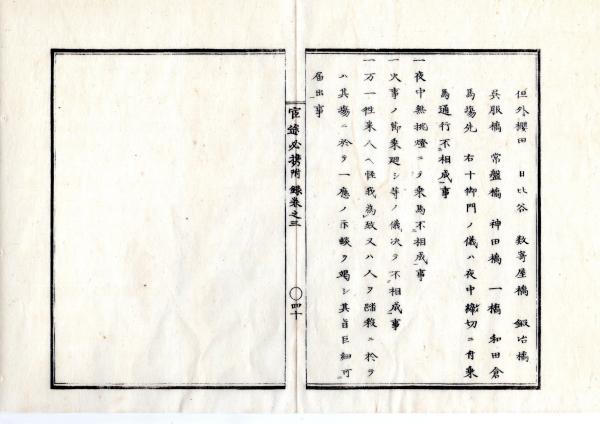 但外櫻田 日比谷 数寄屋橋 鍛冶橋
呉服橋 常盤橋 神田橋 一橋 和田倉
馬場先 右十御門ノ儀ハ夜中締切ニ付乗
馬通行不相成事
一夜中無挑燈ニテ乗馬不相成事
一火事ノ節乗廻シ等ノ儀決テ不相成事
一万一往来人ヘ怪我為致又ハ人ヲ踏殺ニ於テ
ハ其場ニ於テ一應ノ示談ヲ竭シ其旨巨細可
届出事
官途必携附錄卷之三
〇四十